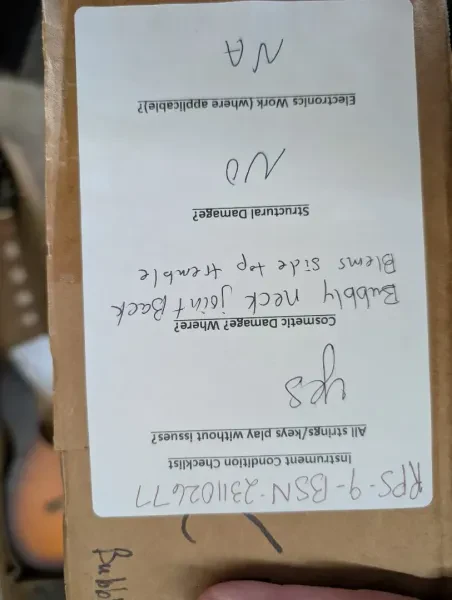 RPS-9-BSN-231102677
Instrument Condition Checklist
All strings/keys play without issues?
Yes
Cosmetic Damage? Where?
Bubbly neck joint Back
Blems side top tremble
Structural Damage?
NO
Electronics Work (where applicable)?
NA